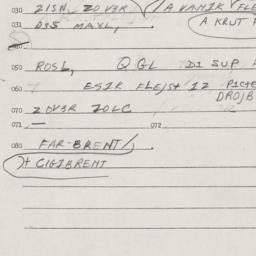 030 21SN, ZOV3R / A VANIK V FLE
031 D35 MAYL, A KRUT
050 ROSL, QGL DI SUP
060 ESIR FLEJST 12 PICTE
DROJB
070 ZOV3R ZOLC
071 — 072
080 FAR-BRENT/,
)+ CIGIBRENT